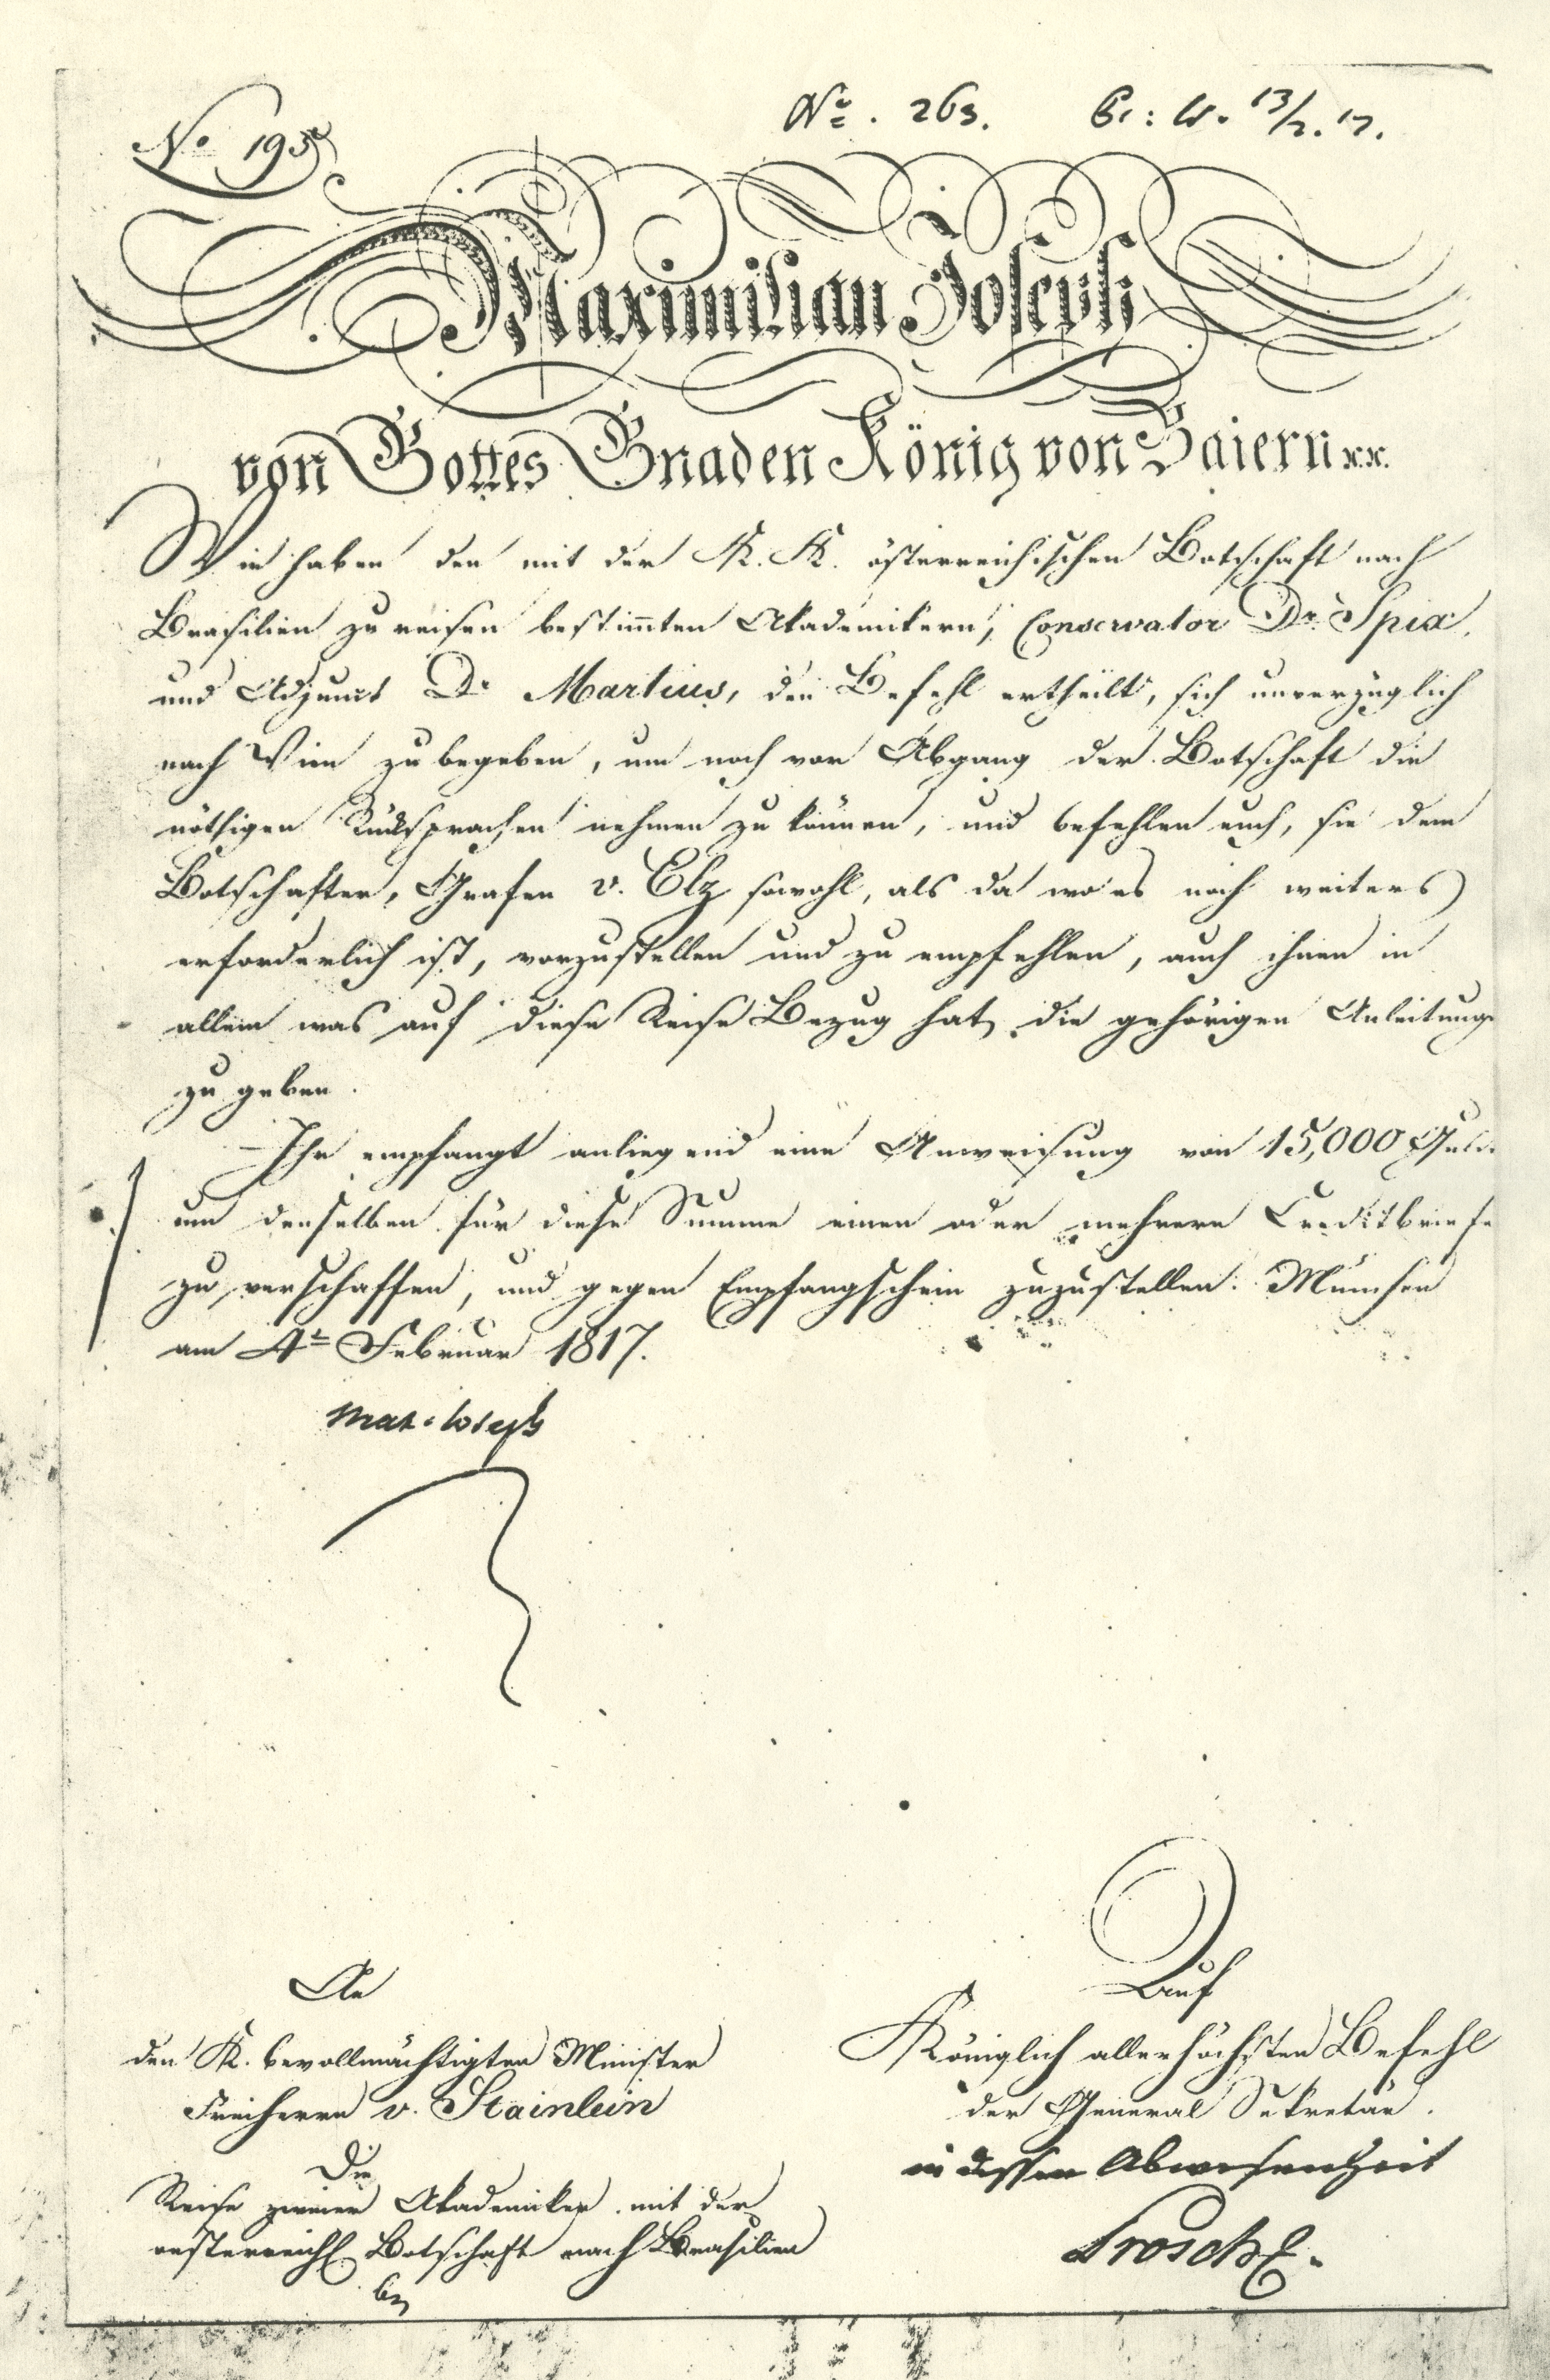 No 195
No. 263. Pr: W. 13/2. 17.
Maximilian Joseph
von Gottes Gnaden König von Baiern x.x.
Wir haben den mit der K. K. österreichischen Botschaft nach
Brasilien zu reisen bestimmten Akademikern, Conservator Dr. Spix,
und Adjunct Dr Martius, den Befehl ertheilt, sich unverzüglich
nach Wien zu begeben, um noch vor Abgang der Botschaft die
nöthigen Rücksprachen nehmen zu können, und befehlen euch, sie dem
Botschafter, Grafen v. Elz sowohl, als da wo es noch weiters
erforderlich ist, vorzustellen und zu empfehlen, auch ihnen in
allem was auf diese Reise Bezug hat, die gehörigen Anleitung
zu geben.
Ihr empfangt anliegend eine Anweisung von 15,000 Guld
um denselben für diese Summe einen oder mehrere Creditbriefe
zu verschaffen, und gegen Empfangschein zuzustellen. München
am 4t Februar 1817.
Max Joseph
An
den K. bevollmächtigten Minister
Freiherrn v. Stainlein
Die
Reise zweier Akademiker mit der
oesterreich Botschaft nach Brasilien
Auf
Königlich allerhöchsten Befehl
der General Sekretär.
in dessen Abwesenheit